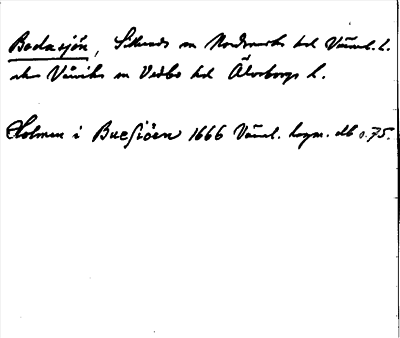 Bodasjön, Sillerud sn Nordmarks hd Värml. l.
och Vårviks sn Vedbo hd Älvsborgs l.
Holmen i Bueſiöen 1666 Värml. lagm. db s. 75.